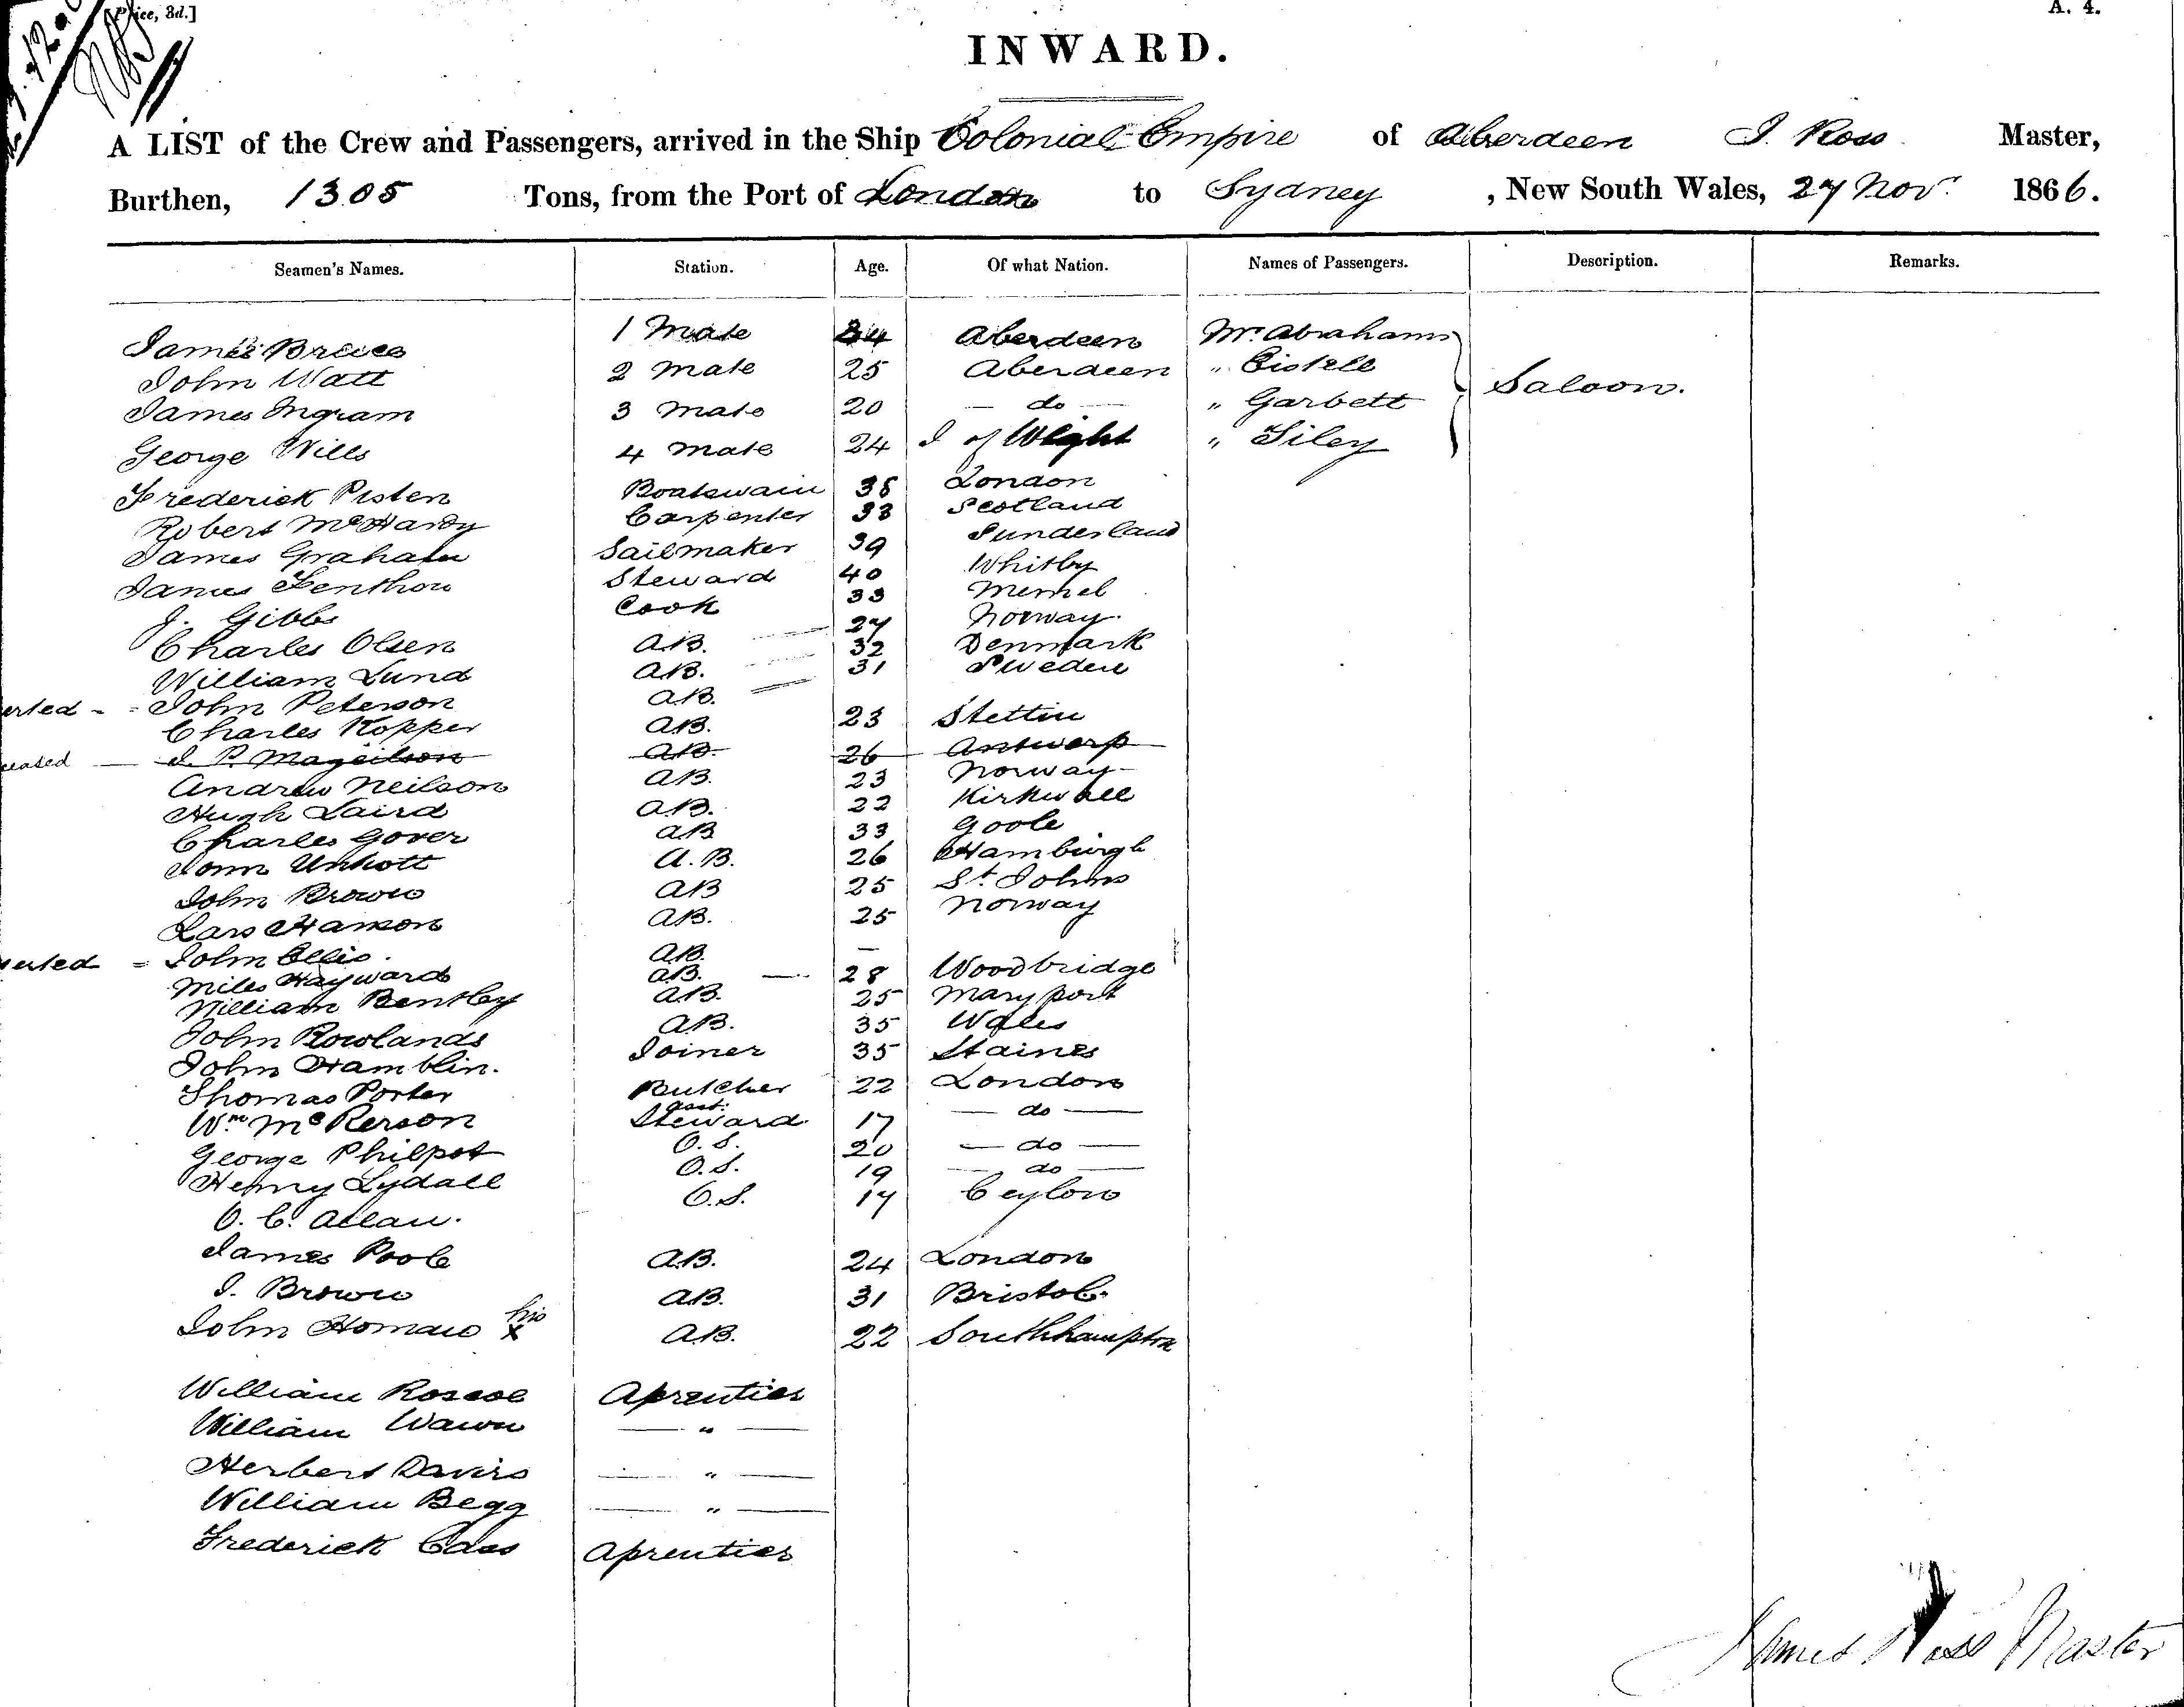 Price, 3d.]
A. 4.
INWARD.
A LIST of the Crew and Passengers, arrived in the Ship Colonial Empire of Aberdeen J. Ross Master,
Burthen, 1305 Tons, from the Port of London to Sydney, New South Wales, 27 Novr. 1866.
Seamen's Names. Station. Age. Of what Nation. Names of Passengers. Description. Remarks.
James 1 Mate 34 Aberdeen Mr. Abrahams
John Watt 2 Mate 25 Aberdeen " Saloon.
James Ingram 3 Mate 20 — do — " Garbett
George Wills 4 Mate 24 I of Wight " Siley
Frederick Pisten Boatswain 38 London
Robert McHardy Carpenter 33 Scotland
James Graham Sailmaker 39 Sunderland
James Steward 40 Whitby
J. Gibbs Cook 33 Memel
Charles Olsen A.B. 27 Norway
William Lund A.B. 32 Denmark
erted - John Peterson A.B. 31 Sweden
Charles Kopper A.B. 23 Stettin
ceased — J. P. Mageilson A.B. 26 Antwerp
Andrew Neilson A.B. 23 Norway
Hugh Laird A.B. 22 Kirkwall
Charles Gover A.B. 33 Goole
John A.B. 26 Hamburgh
John Brown A.B. 25 St. Johns
Lars Hanson A.B. 25 Norway
serted = John Ellis. A.B. —
Miles Hayward A.B. — 28 Woodbridge
William Bentley A.B. 25 Maryport
John Rowlands A.B. 35 Wales
John Hamblin. Joiner 35 Staines
Thomas Porter Butcher 22 London
Wm. McKerson asst. Steward. 17 — do —
George Philpot O.S. 20 — do —
Henry Lydall O.S. 19 — do —
O. C. Allan. O.S. 17 Ceylon
James Poole A.B. 24 London
J. Brown A.B. 31 Bristol.
John Homan his x A.B. 22 Southhampton
William Roscoe Aprentice
William Wawn — " —
Herbert Davies — " —
William Begg — " —
Frederick Cass Aprentice
James Ross Master